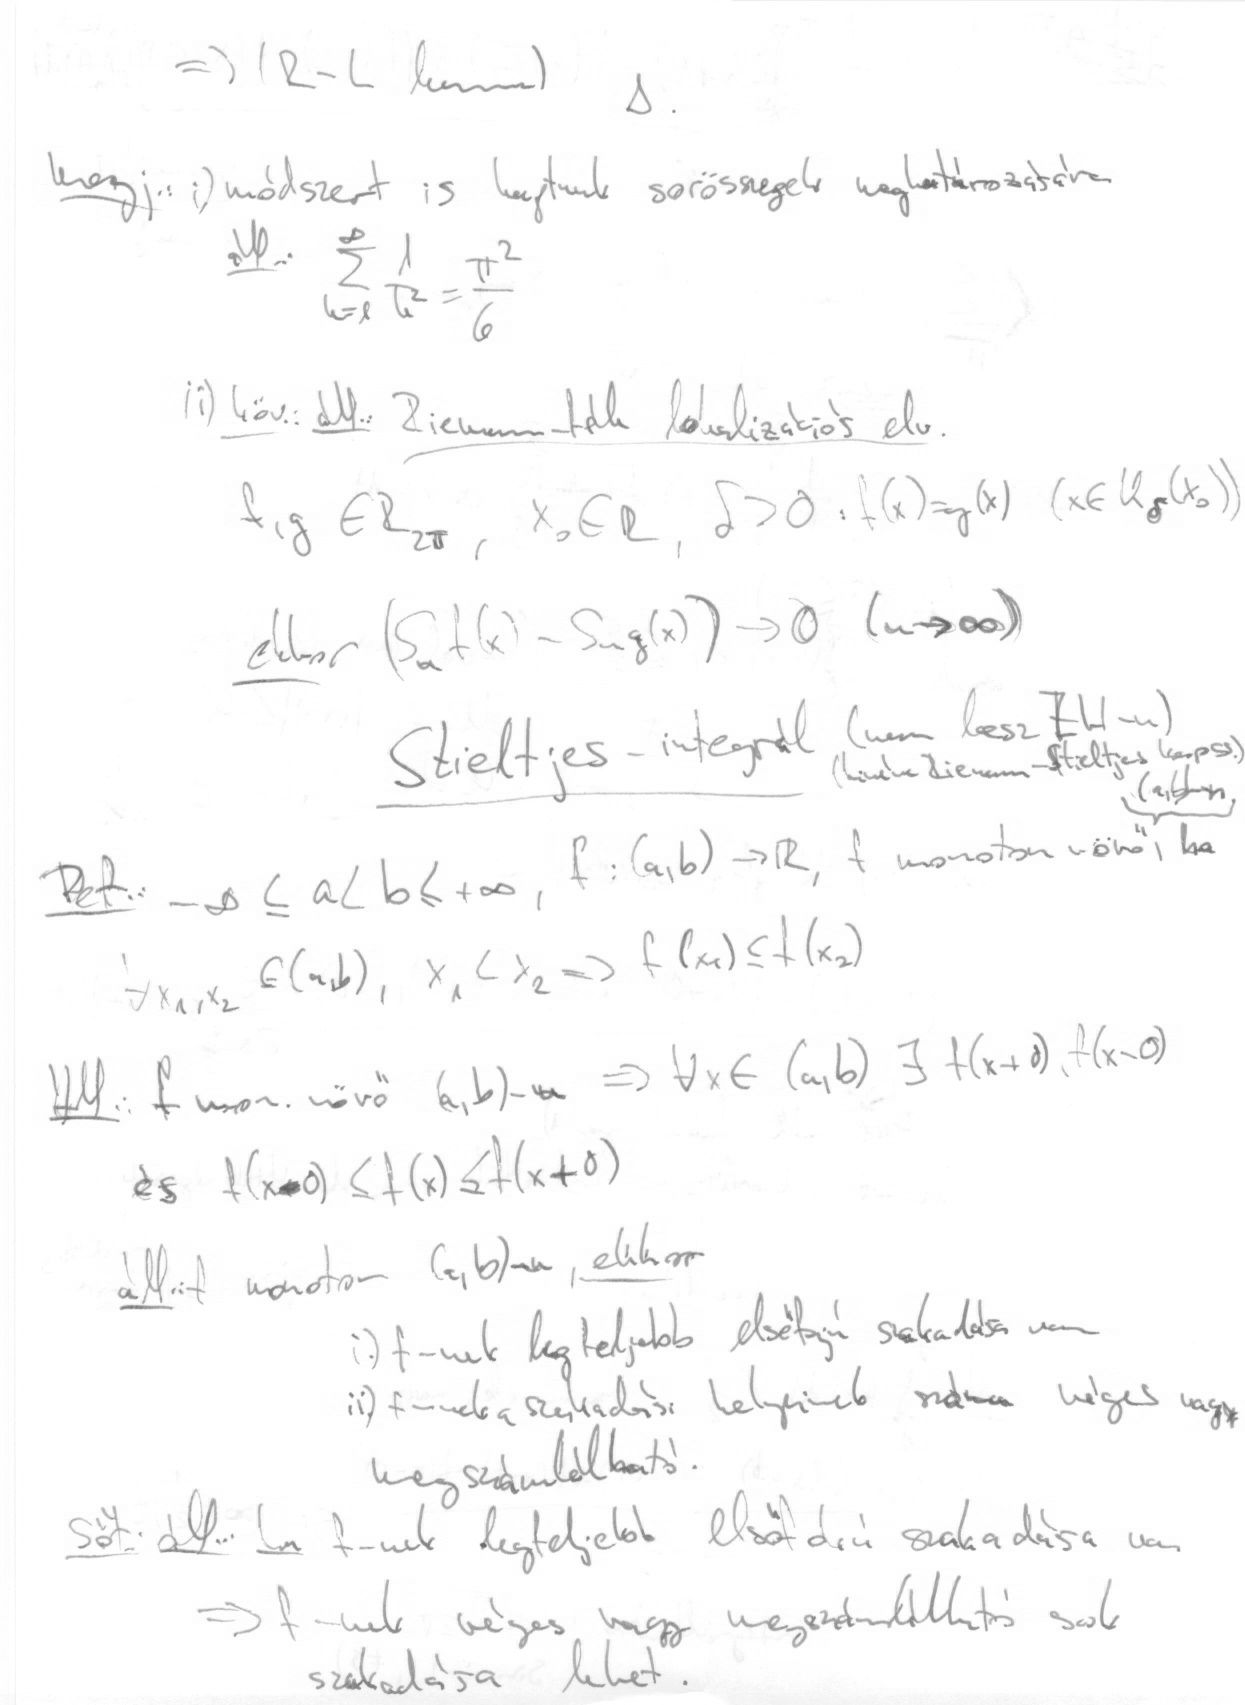 => (R-L lemma) Δ.
Megj.: i) módszert is kaptunk sorösszegek meghatározására
áll.: ∞∑k=1 1/k² = π²/6
ii) köv.: áll.: Riemann-féle lokalizációs elv.
f,g ∈ R2π, x₀∈R, δ>0 : f(x)=g(x) (x∈Kδ(x₀))
ekkor (Snf(x) - Sng(x)) → 0 (n→∞)
Stieltjes-integrál (nem lesz ZH-n)
Riemann-Stieltjes kapcs.)
(a,b)-n
Def.: -∞ ≤ a < b ≤ +∞, f : (a,b) → R, f monoton növő, ha
∀x₁,x₂ ∈(a,b), x₁ < x₂ => f(x₁) ≤ f(x₂)
Áll.: f mon. növő (a,b)-n => ∀x∈ (a,b) ∃ f(x+0), f(x-0)
és f(x-0) ≤ f(x) ≤ f(x+0)
áll.: f monoton (a,b)-n, ekkor
i.) f-nek legfeljebb elsőfajú szakadása van
ii) f-nek a szakadási helyeinek száma véges vagy
megszámlálható.
Sőt: áll.: ha f-nek legfeljebb elsőfajú szakadása van
=> f-nek véges vagy megszámlálható sok
szakadása lehet.